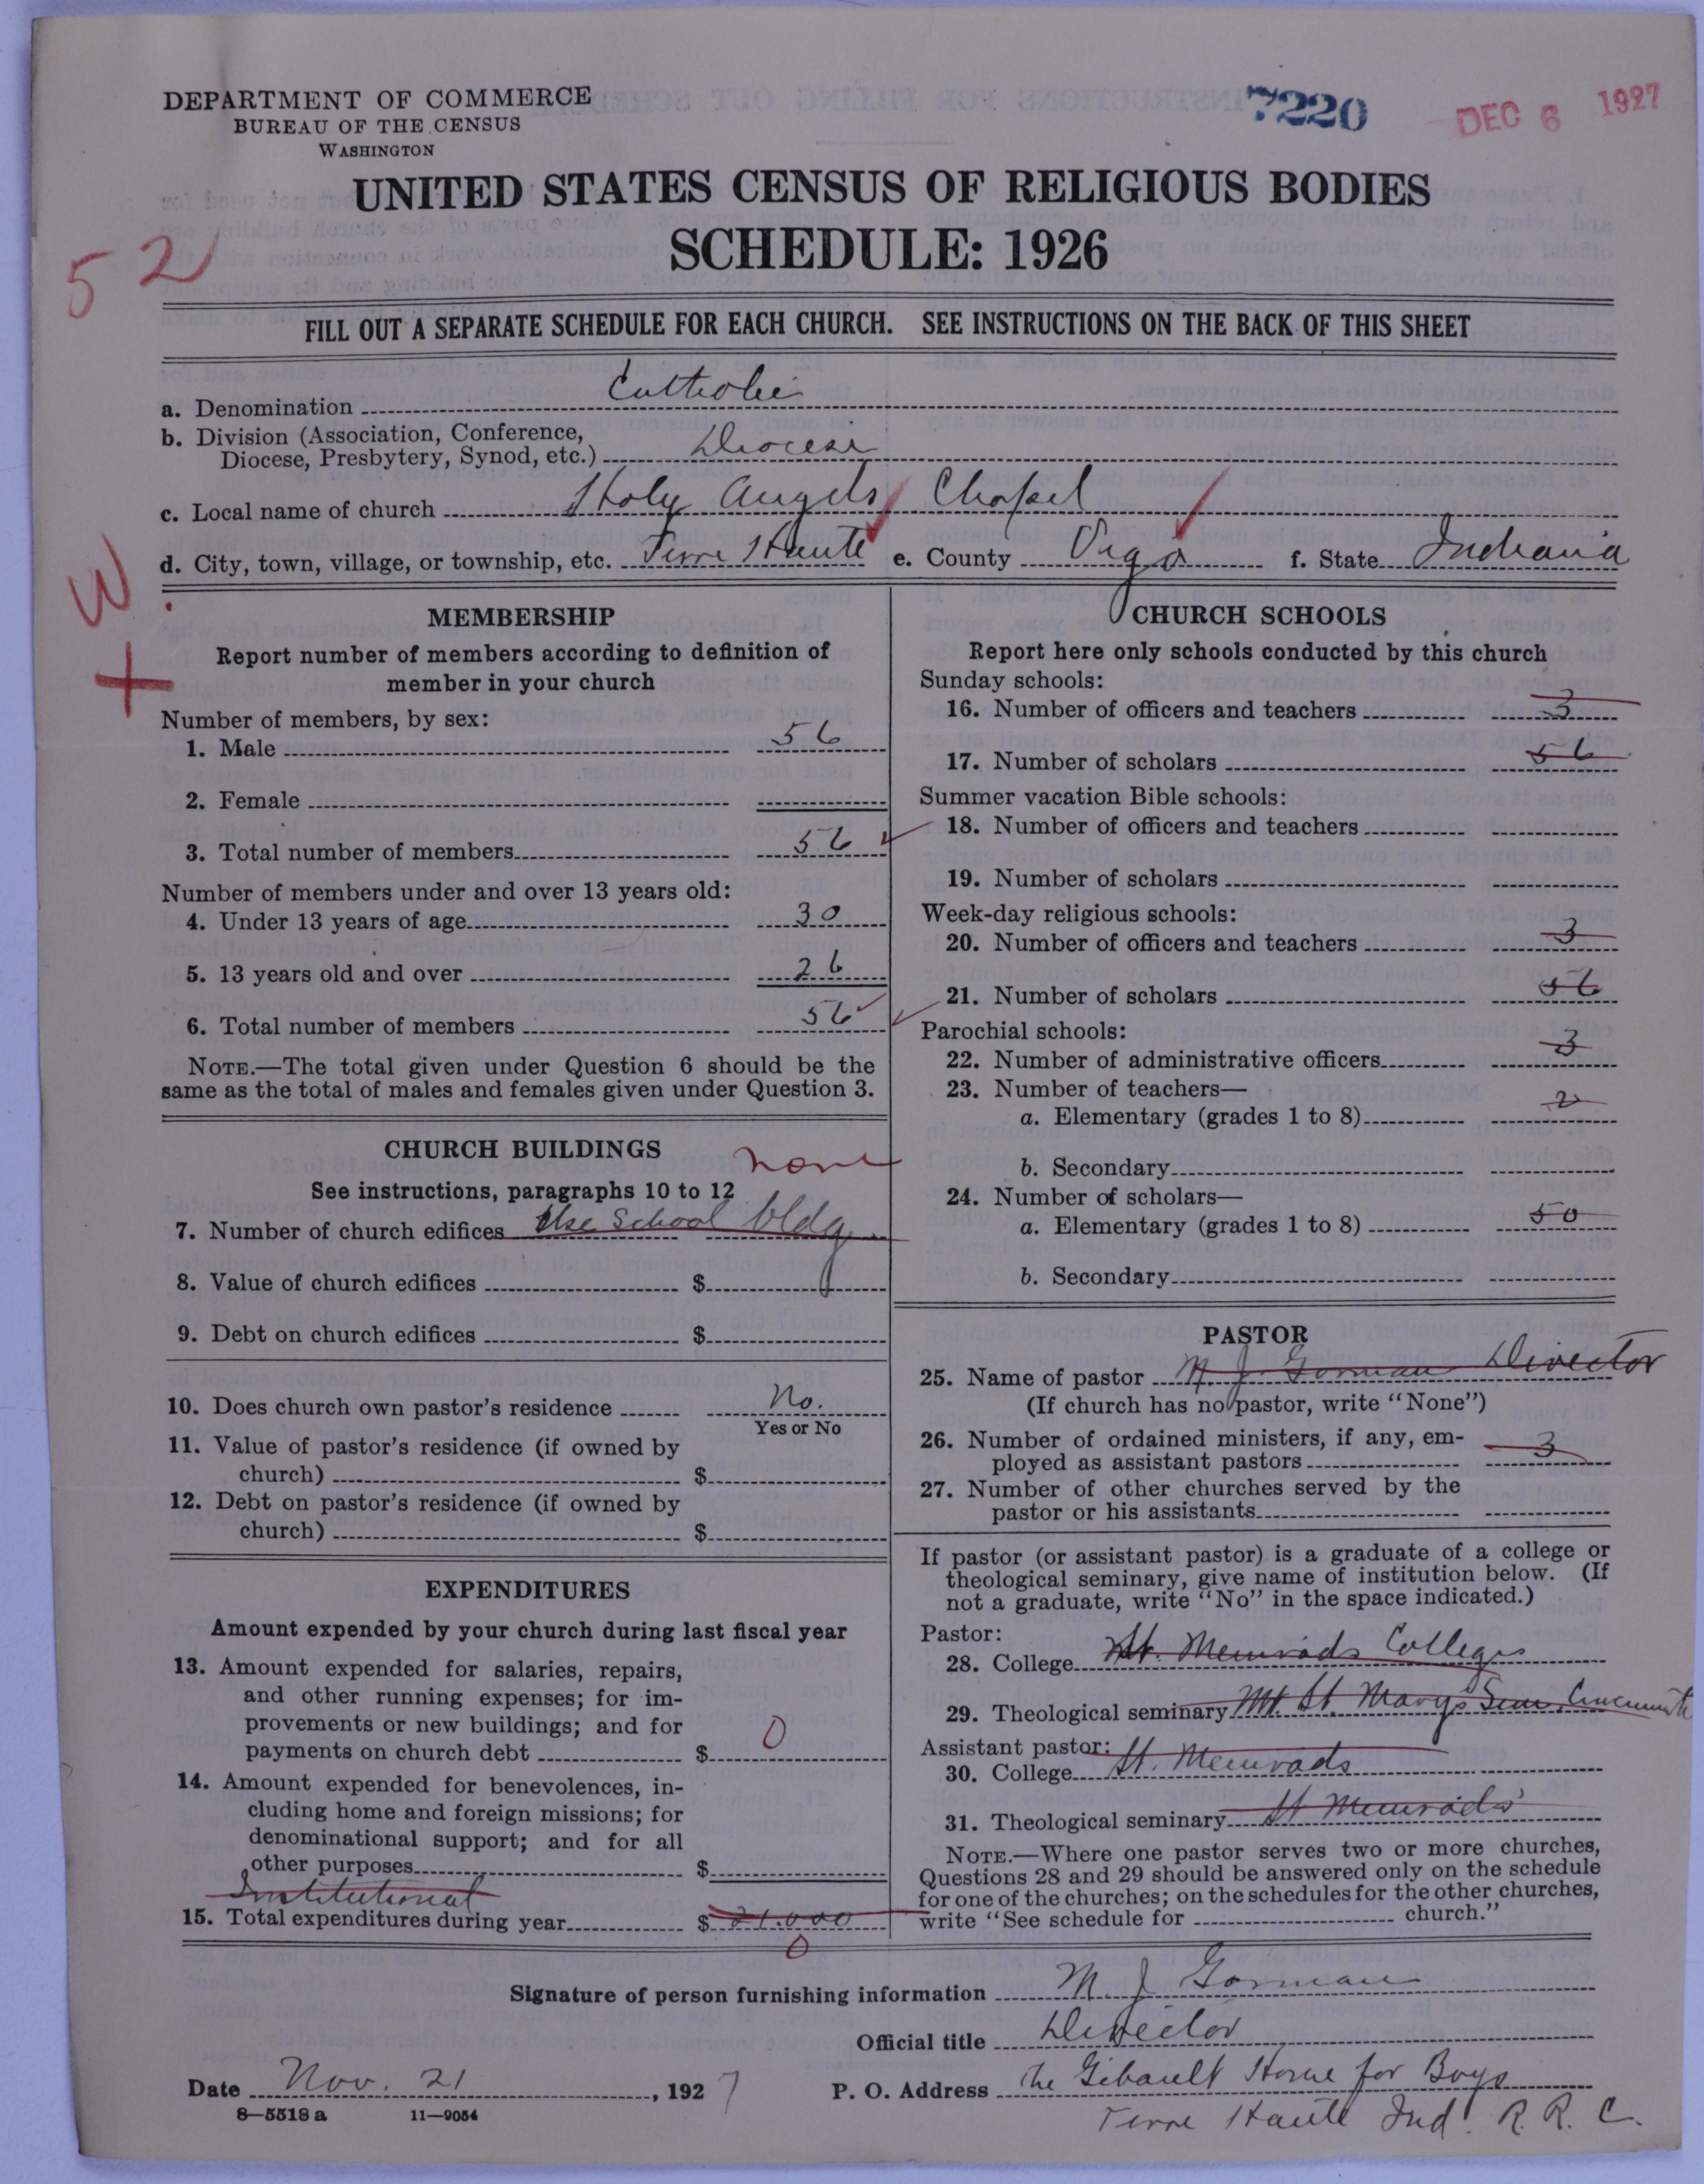 DEPARTMENT OF COMMERCE
BUREAU OF THE CENSUS
WASHINGTON
7220
DEC 6 1927
UNITED STATES CENSUS OF RELIGIOUS BODIES
SCHEDULE: 1926
52
FILL OUT A SEPARATE SCHEDULE FOR EACH CHURCH. SEE INSTRUCTIONS ON THE BACK OF THIS SHEET
a. Denomination Catholic
b. Division (Association, Conference,
Diocese, Presbytery, Synod, etc.) Diocese
c. Local name of church Holy Angels Chapel
d. City, town, village, or township, etc. Terre Haute e. County Vigo f. State Indiana
W
+
MEMBERSHIP
Report number of members according to definition of
member in your church
Number of members, by sex:
1. Male 56
2. Female
3. Total number of members 56
Number of members under and over 13 years old:
4. Under 13 years of age 30
5. 13 years old and over 26
6. Total number of members 56
NOTE.—The total given under Question 6 should be the
same as the total of males and females given under Question 3.
CHURCH BUILDINGS
none
See instructions, paragraphs 10 to 12
7. Number of church edifices Use School bldg.
8. Value of church edifices $
9. Debt on church edifices $
10. Does church own pastor's residence No.
Yes or No
11. Value of pastor's residence (if owned by
church) $
12. Debt on pastor's residence (if owned by
church) $
EXPENDITURES
Amount expended by your church during last fiscal year
13. Amount expended for salaries, repairs,
and other running expenses; for im-
provements or new buildings; and for
payments on church debt $ 0
14. Amount expended for benevolences, in-
cluding home and foreign missions; for
denominational support; and for all
other purposes $
Institutional
15. Total expenditures during year $ 21.000
0
CHURCH SCHOOLS
Report here only schools conducted by this church
Sunday schools:
16. Number of officers and teachers 3
17. Number of scholars 56
Summer vacation Bible schools:
18. Number of officers and teachers
19. Number of scholars
Week-day religious schools:
20. Number of officers and teachers 3
21. Number of scholars 56
Parochial schools:
22. Number of administrative officers 3
23. Number of teachers—
a. Elementary (grades 1 to 8) 2
b. Secondary
24. Number of scholars—
a. Elementary (grades 1 to 8) 50
b. Secondary
PASTOR
25. Name of pastor M. J. Gorman Director
(If church has no pastor, write "None")
26. Number of ordained ministers, if any, em-
ployed as assistant pastors 3
27. Number of other churches served by the
pastor or his assistants
If pastor (or assistant pastor) is a graduate of a college or
theological seminary, give name of institution below. (If
not a graduate, write "No" in the space indicated.)
Pastor:
28. College St. Meinrads College
29. Theological seminary Mt. St. Mary's Sem. Cincinnati
Assistant pastor:
30. College St. Meinrads
31. Theological seminary St Meinrads
NOTE.—Where one pastor serves two or more churches,
Questions 28 and 29 should be answered only on the schedule
for one of the churches; on the schedules for the other churches,
write "See schedule for church."
Signature of person furnishing information M J Gorman
Official title Director
Date Nov. 21, 1927 P. O. Address The Gibault Home for Boys
Terre Haute Ind. R. R. C.
8—5518 a 11—9054